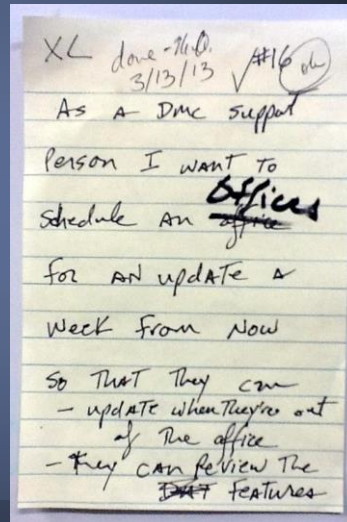 XL done - 
3/13/13 √ #16 ok
As A DMC Support
Person I WANT TO
Offices
schedule AN office
for AN update A
week from Now
so THAT They can
- update when They're out
of The office
- They CAN Review The
DAT FEATURES